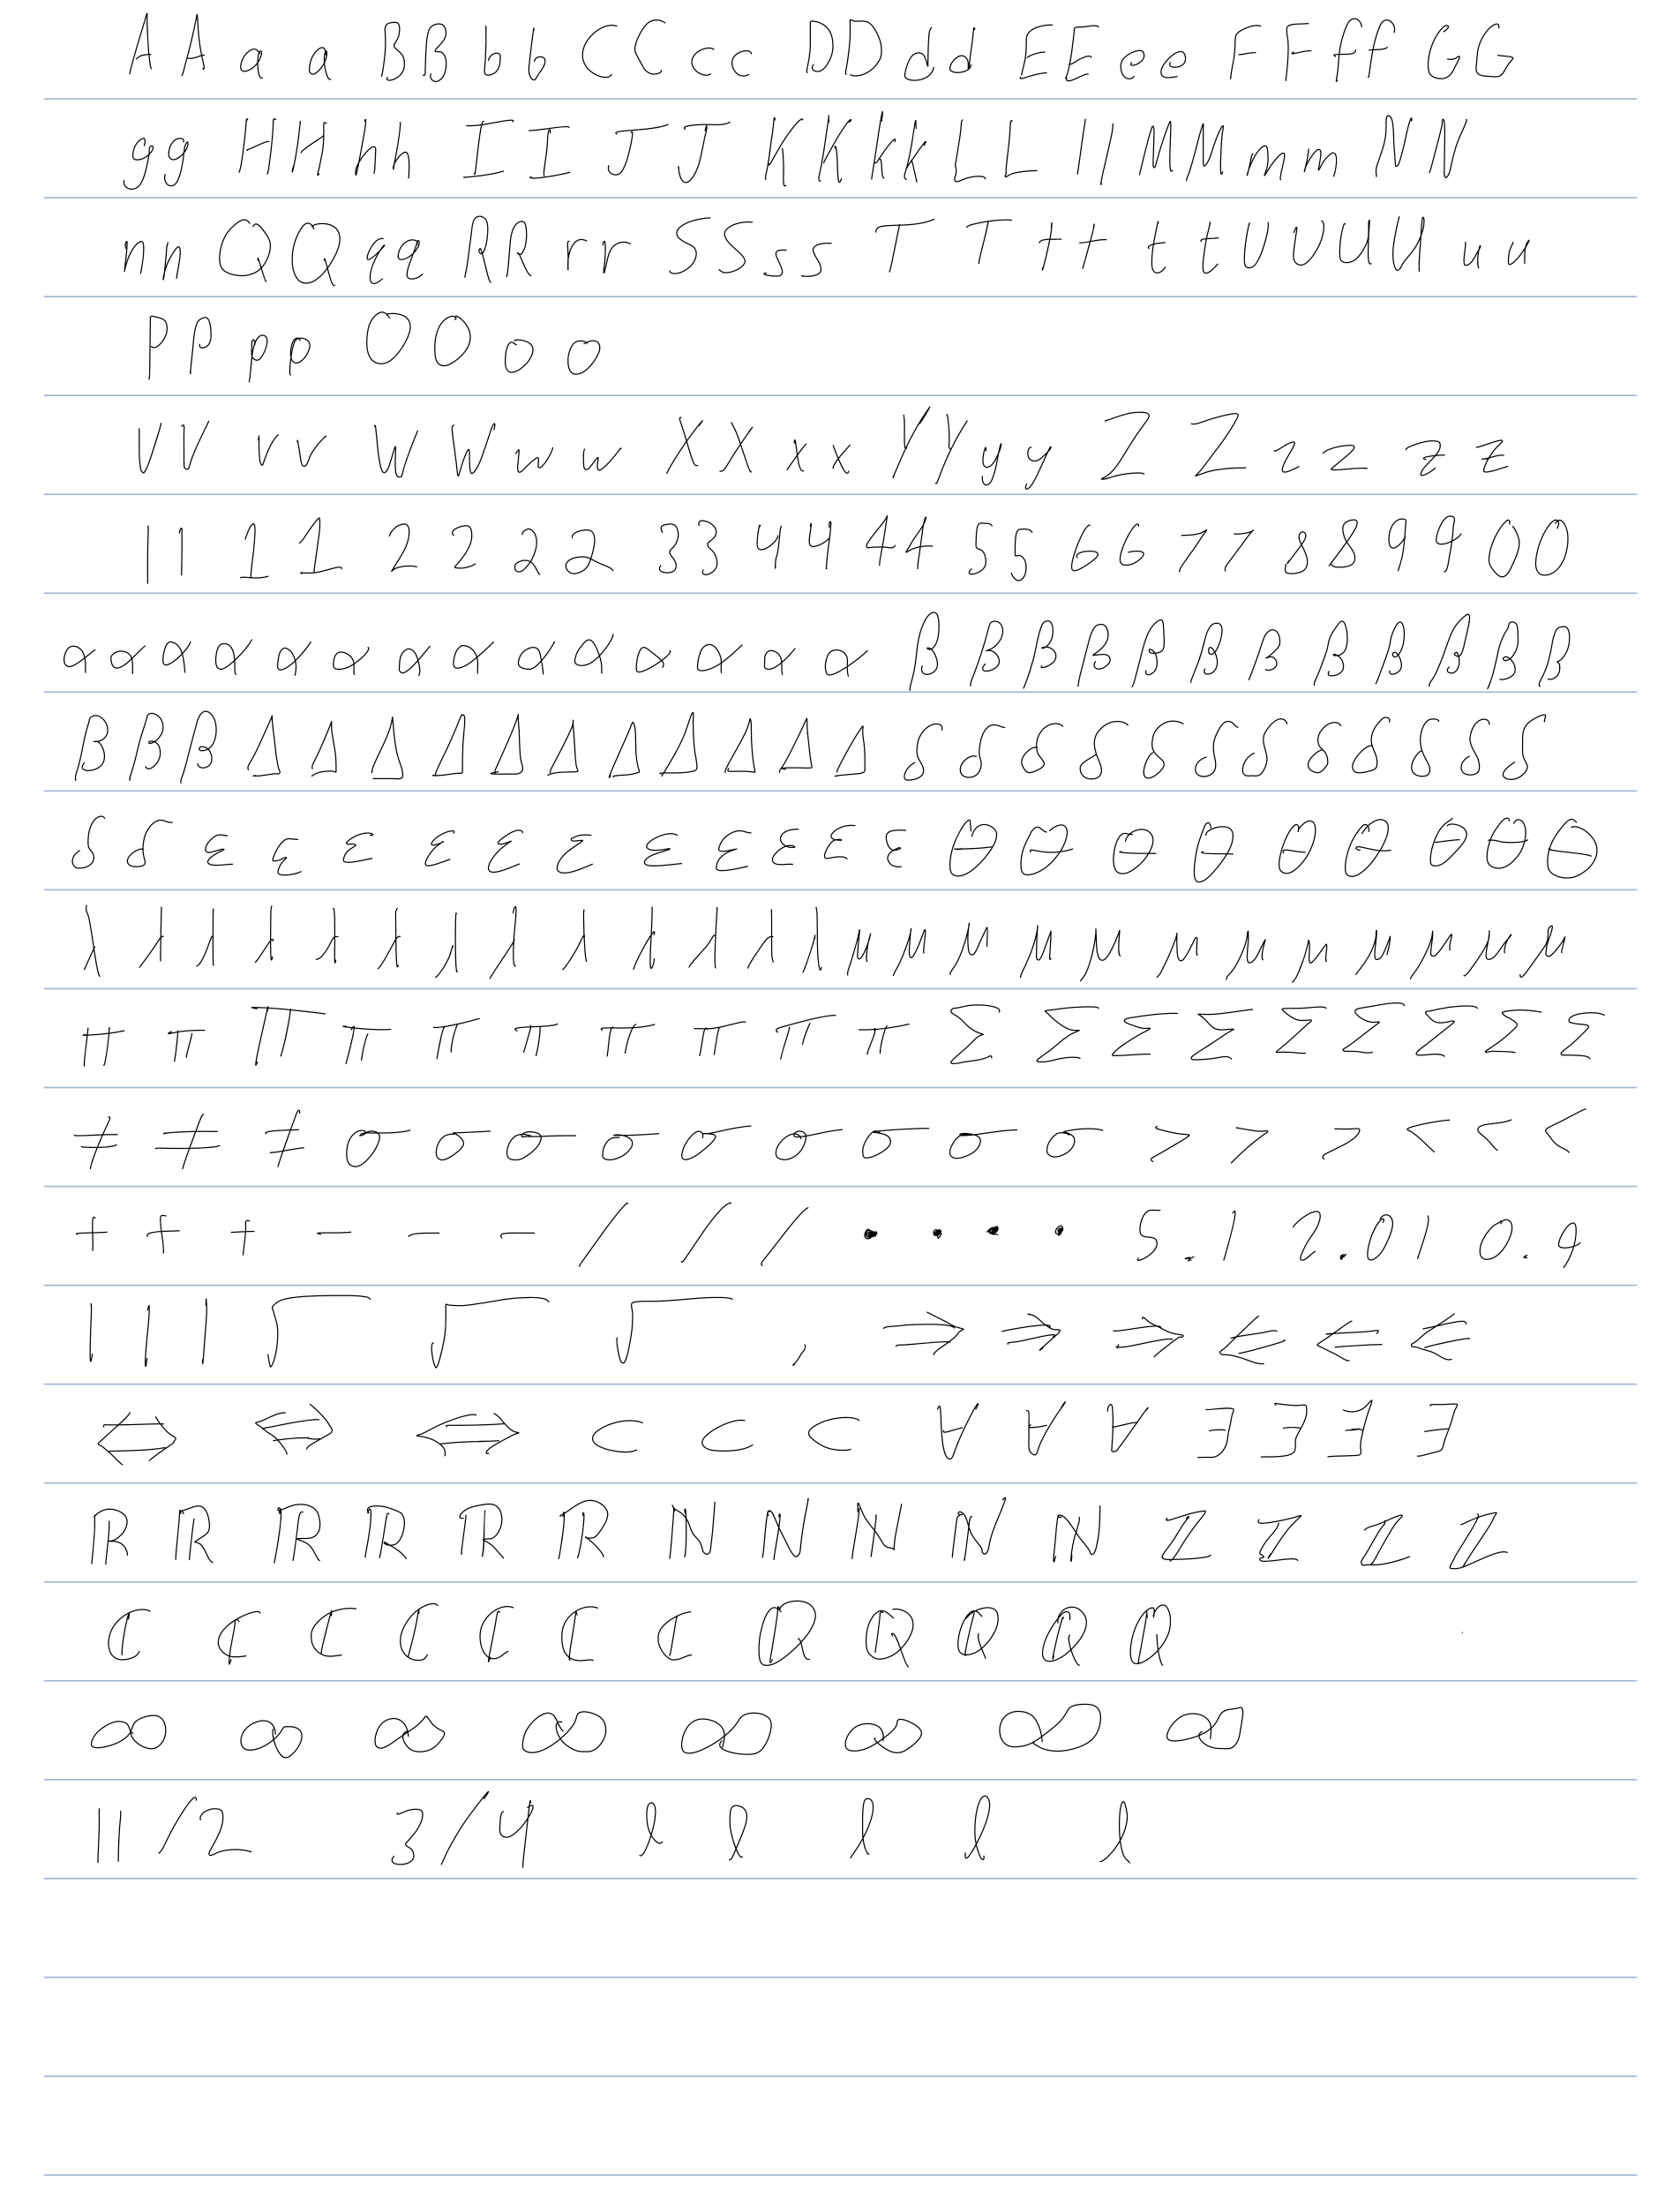 A A a a B B b b C C c c D D d d E E e e F F f f G G
g g H H h h I I J J K K k k L L l l M M m m N N
n n Q Q q q R R r r S S s s T T t t t t U U U U u u
P P p p O O o o
V V v v W W w w X X x x Y Y y y Z Z z z z z
1 1 1 1 2 2 2 2 3 3 4 4 4 4 5 5 6 6 7 7 8 8 9 9 0 0
α α α α α α α α α α α α α α β β β β β β β β β β β β
β β β Δ Δ Δ Δ Δ Δ Δ Δ Δ Δ Δ δ δ δ δ δ δ δ δ δ δ δ δ
δ δ ε ε ε ε ε ε ε ε ε ε ε θ θ θ θ θ θ θ θ θ
λ λ λ λ λ λ λ λ λ λ λ λ λ μ μ μ μ μ μ μ μ μ μ μ μ
π π π π π π π π π π Σ Σ Σ Σ Σ Σ Σ Σ Σ
≠ ≠ ≠ σ σ σ σ σ σ σ σ σ > > > < < <
+ + + - - - / / / • • • • 5.1 2.01 0.9
| | | √ √ √ , ⇒ ⇒ ⇒ ⇐ ⇐ ⇐
⇔ ⇔ ⇔ ⊂ ⊂ ⊂ ∀ ∀ ∀ ∃ ∃ ∃ ∃
ℝ ℝ ℝ ℝ ℝ ℝ ℕ ℕ ℕ ℕ ℕ ℤ ℤ ℤ ℤ
ℂ ℂ ℂ ℂ ℂ ℂ ℂ ℚ ℚ ℚ ℚ ℚ
∞ ∞ ∞ ∞ ∞ ∞ ∞ ∞
11/2 3/4 l l l l l